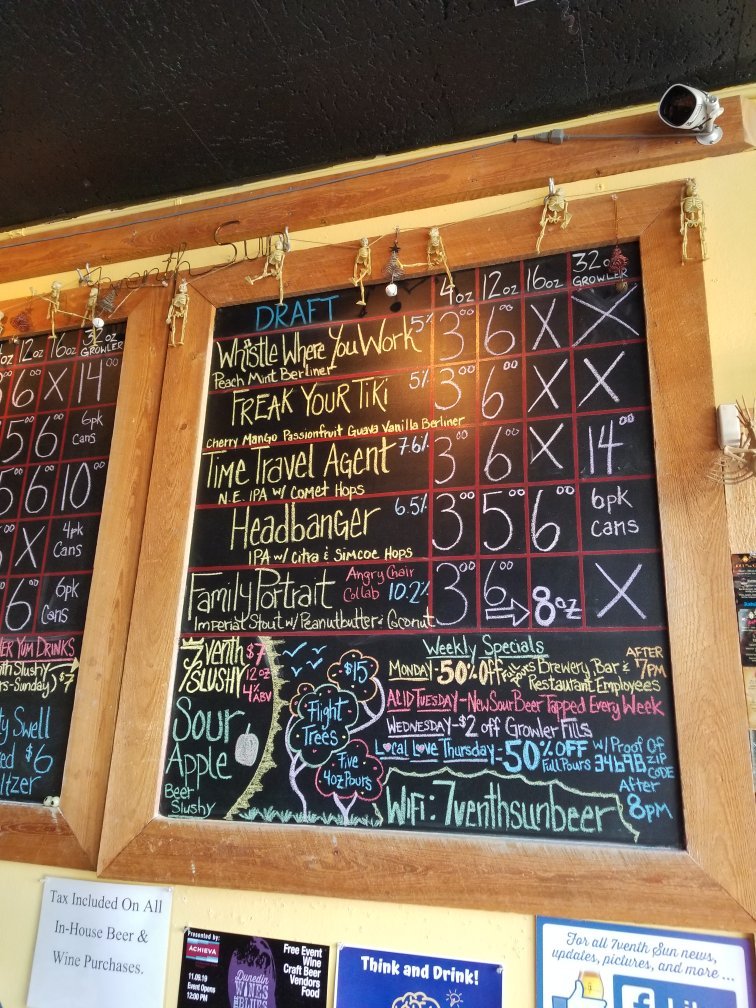 7venth Sun
12oz 16oz 32oz
GROWLER
6⁰⁰ X 14⁰⁰
5⁰⁰ 6⁰⁰ 6pk
Cans
6⁰⁰ 10⁰⁰
X 4pk
Cans
6⁰⁰ 6pk
Cans
YUM DRINKS
Slushy
Sunday) $7
Swell
$6
DRAFT 4oz 12oz 16oz 32oz
GROWLER
Whistle Where You Work 5% 3⁰⁰ 6⁰⁰ X X
Peach Mint Berliner
FREAK YOUR TIKI 5% 3⁰⁰ 6⁰⁰ X X
Cherry Mango Passionfruit Guava Vanilla Berliner
Time Travel Agent 7.6% 3⁰⁰ 6⁰⁰ X 14⁰⁰
N.E. IPA w/ Comet Hops
Headbanger 6.5% 3⁰⁰ 5⁰⁰ 6⁰⁰ 6pk
cans
IPA w/ Citra & Simcoe Hops
Family Portrait Angry Chair
Collab 10.2% 3⁰⁰ 6⁰⁰ 8oz X
Imperial Stout w/ Peanutbutter & Coconut
7venth
Slushy
$7
12oz
4% ABV
Sour
Apple
Beer
Slushy
$15
Flight
Trees
Five
4oz Pours
Weekly Specials
MONDAY - 50% Off Full Pours Brewery Bar & Restaurant Employees AFTER 7PM
ACID TUESDAY - New Sour Beer Tapped Every Week
WEDNESDAY - $2 off Growler Fills
Local Love Thursday - 50% OFF Full Pours w/ Proof Of 34698 ZIP CODE
After
8pm
WIFI: 7venthsunbeer
Tax Included On All
In-House Beer &
Wine Purchases.
Presented by:
ACHIEVA
11.09.19
Event Opens
12:00 PM
Dunedin
WINES
THE BLUES
Free Event
Wine
Craft Beer
Vendors
Food
Think and Drink!
For all 7venth Sun news,
updates, pictures, and more ...